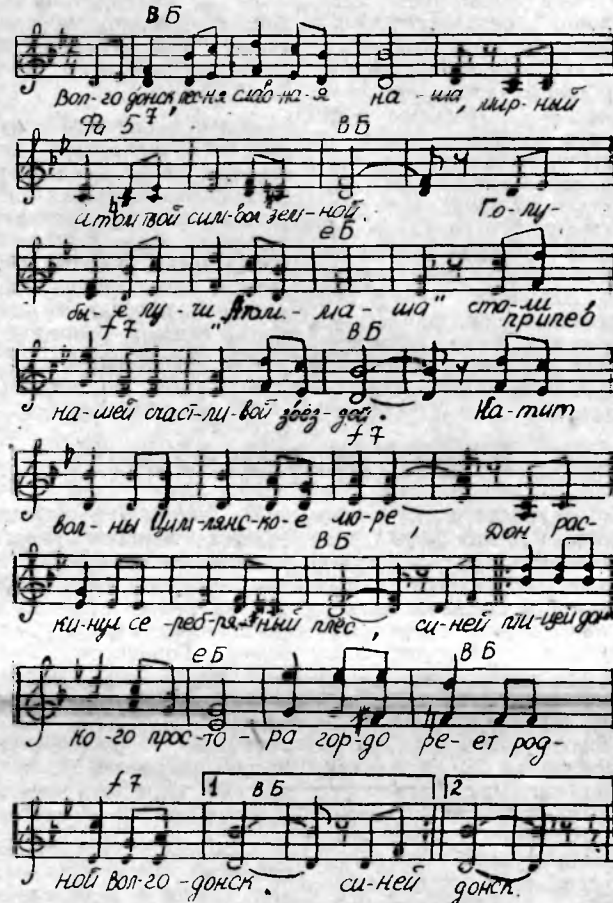 в Б
Вол-го донск, песня слав-на-я на-ша, мир-ный
Фа 5 7 в Б
атом твой сим-вол зем-ной. Го-лу-
е Б
бы-е лу-чи "Атом-ма-ша" ста-ли
припев
f 7 в Б
на-шей счаст-ли-вой звёз-дой. Ка-тит
f 7
вол-ны Цим-лянс-ко-е мо-ре, Дон рас-
в Б
ки-нул се-реб-ря-ный плёс, си-ней пти-цей донс
е Б в Б
ко-го прос-то-ра гор-до ре-ет род-
f 7 1 в Б 2
ной Вол-го-донск. си-ней донск.